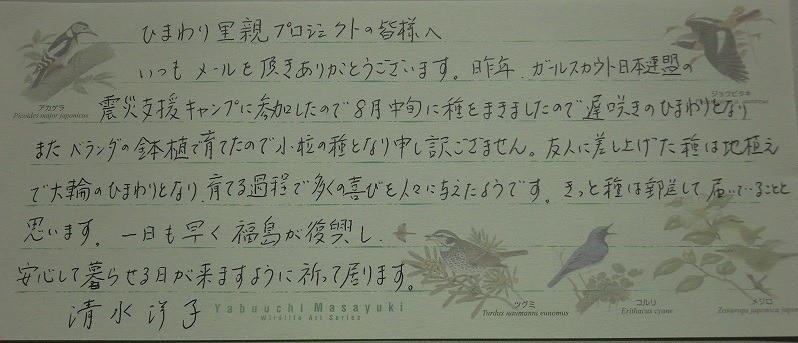 ひまわり里親プロジェクトの皆様へ
いつもメールを頂きありがとうございます。昨年、ガールスカウト日本連盟の
震災支援キャンプに参加したので8月中旬に種をまきましたので遅咲きのひまわりとなり
またベランダの鉢植で育てたので小粒の種となり申し訳ございません。友人に差し上げた種は地植え
で大輪のひまわりとなり、育てる過程で多くの喜びを人々に与えたようです。きっと種は郵送して届いていることと
思います。一日も早く福島が復興し、
安心して暮らせる日が来ますように祈って居ります。
清水洋子
アカゲラ
Picoides major japonicus
ジョウビタキ
ツグミ
Turdus naumanni eunomus
コルリ
Erithacus cyane
メジロ
Zosterops japonica japon
Yabuuchi Masayuki
Wildlife Art Series